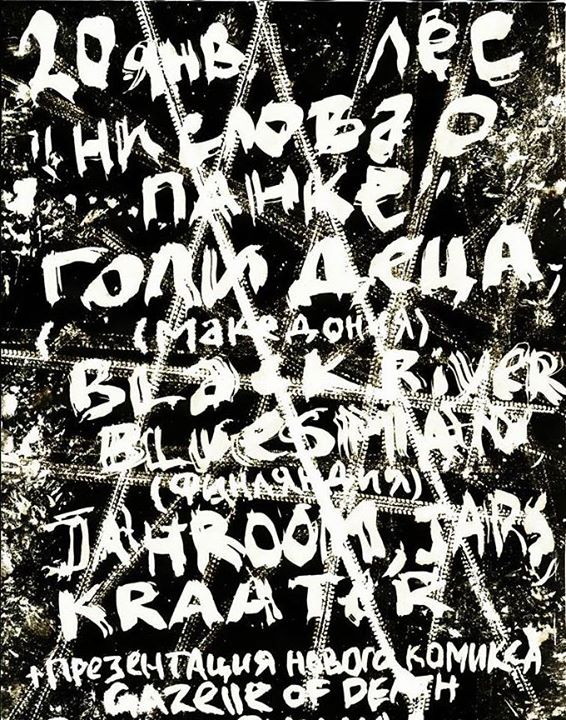 20 янв ЛЕС
"НИ СЛОВА О
ПАНКЕ"
ГОЛИ ДЕЦА
(Македония)
BLACK RIVER
BLUESMAN
(Финляндия)
JARS
KRAATER
+ПРЕЗЕНТАЦИЯ НОВОГО КОМИКСА
GAZELLE OF DEATH